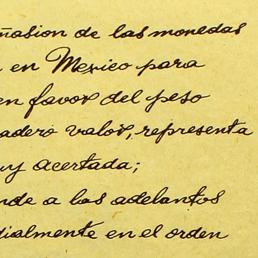 ñasion de las monedas
en Mexico para
en favor del peso
dadero valor, representa
uy acertada;
nde a los adelantos
dialmente en el orden